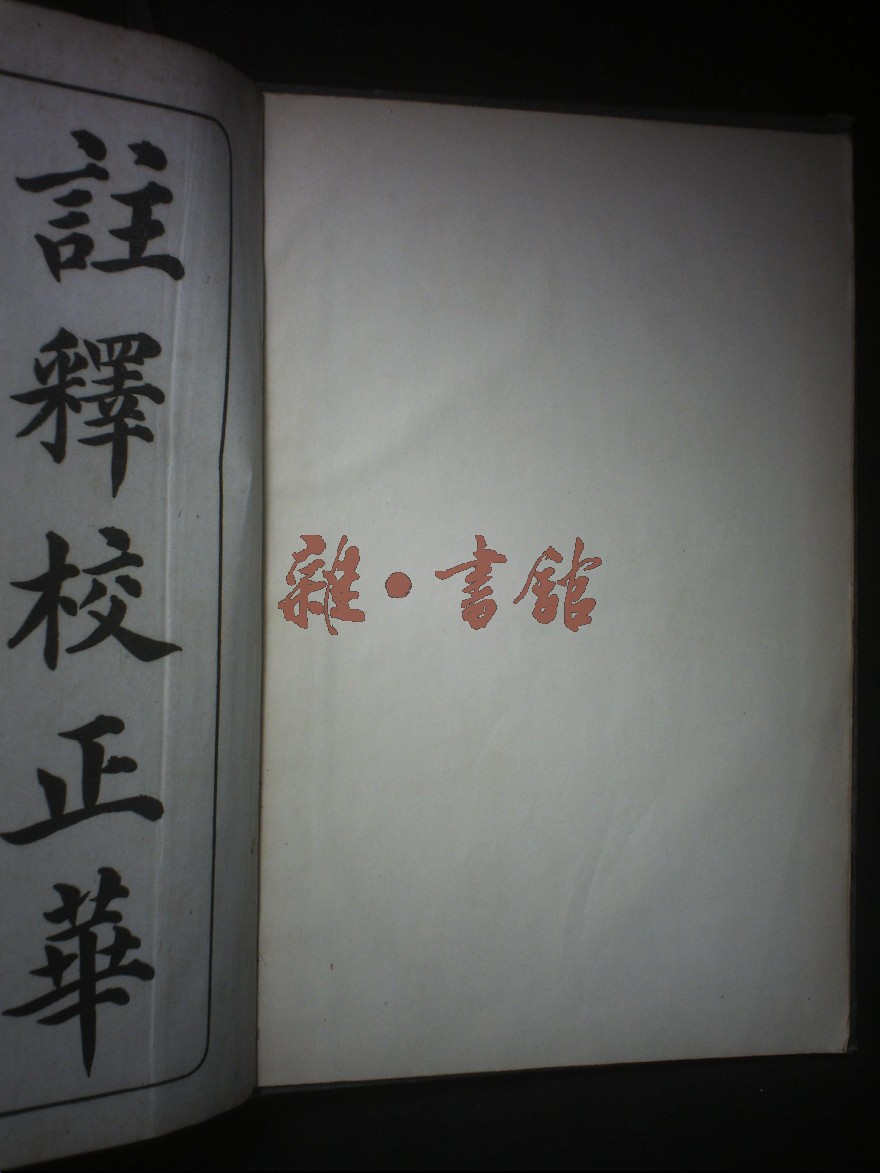 註釋校正華
雜·書館